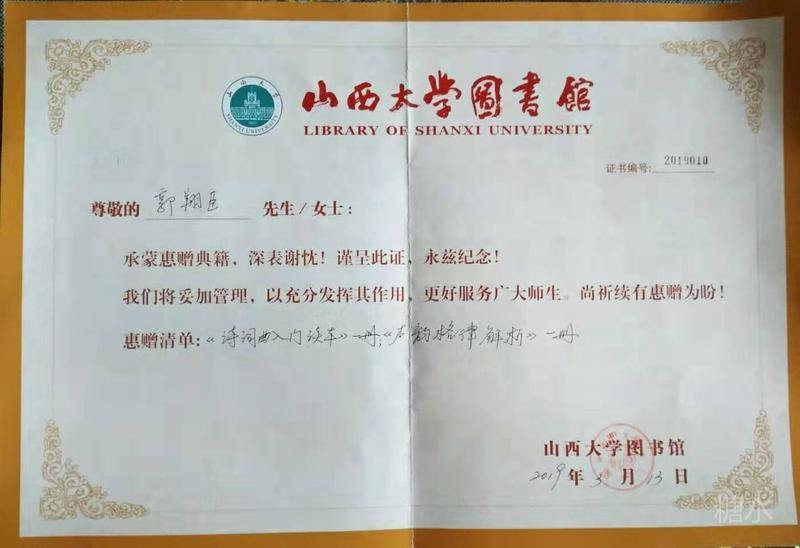 山西大学
SHANXI UNIVERSITY
山西大学圖書館
LIBRARY OF SHANXI UNIVERSITY
证书编号: 2019010
尊敬的 郭翔臣 先生/女士:
承蒙惠赠典籍，深表谢忱！谨呈此证，永兹纪念！
我们将妥加管理，以充分发挥其作用，更好服务广大师生。尚祈续有惠赠为盼！
惠赠清单:《诗词曲入门读本》一册;《声韵格律解析》一册
山西大学图书馆
2019年3月13日
糖水